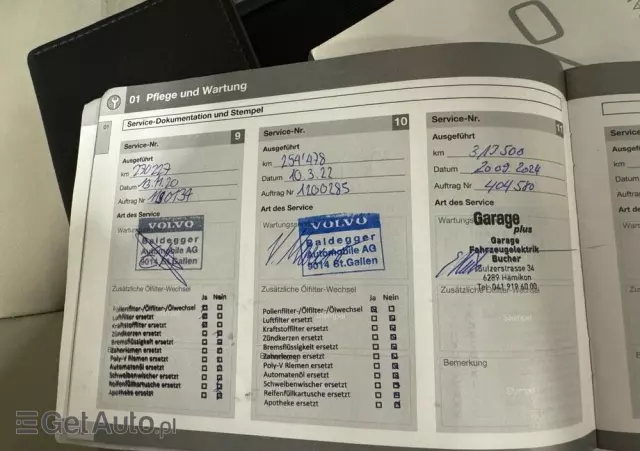 01 Pflege und Wartung
01
Service-Dokumentation und Stempel
Service-Nr. 9
Ausgeführt
km 230227
Datum 13.11.20
Auftrag Nr 190134
Art des Service
VOLVO
Baldegger
Automobile AG
9014 St.Gallen
Zusätzliche Ölfilter-Wechsel
Ja Nein
Pollenfilter-/Ölfilter-/Ölwechsel
Luftfilter ersetzt
Kraftstoffilter ersetzt
Zündkerzen ersetzt
Bremsflüssigkeit ersetzt
Zahnriemen ersetzt
Poly-V Riemen ersetzt
Automatenöl ersetzt
Scheibenwischer ersetzt
Reifenfüllkartusche ersetzt
Apotheke ersetzt
Service-Nr. 10
Ausgeführt
km 254'478
Datum 10.3.22
Auftrag Nr. 1200285
Art des Service
VOLVO
Baldegger
Automobile AG
9014 St.Gallen
Zusätzliche Ölfilter-Wechsel
Ja Nein
Pollenfilter-/Ölfilter-/Ölwechsel
Luftfilter ersetzt
Kraftstoffilter ersetzt
Zündkerzen ersetzt
Bremsflüssigkeit ersetzt
Zahnriemen ersetzt
Poly-V Riemen ersetzt
Automatenöl ersetzt
Scheibenwischer ersetzt
Reifenfüllkartusche ersetzt
Apotheke ersetzt
Service-Nr. 11
Ausgeführt
km 312500
Datum 20.09.2024
Auftrag Nr. 404580
Art des Service
Wartungs
Garage
plus
Garage
Fahrzeugelektrik
Bucher
Sulzerstrasse 34
6289 Hämikon
Tel. 041 919 60 00
Zusätzliche Ölfilter-Wechsel
Stempel
Bemerkung
Stempel
Service-Nr.
Ausgeführt
km
Datum
Auftrag
Art des
Wartung
Zusätz
Bem
GetAuto.pl